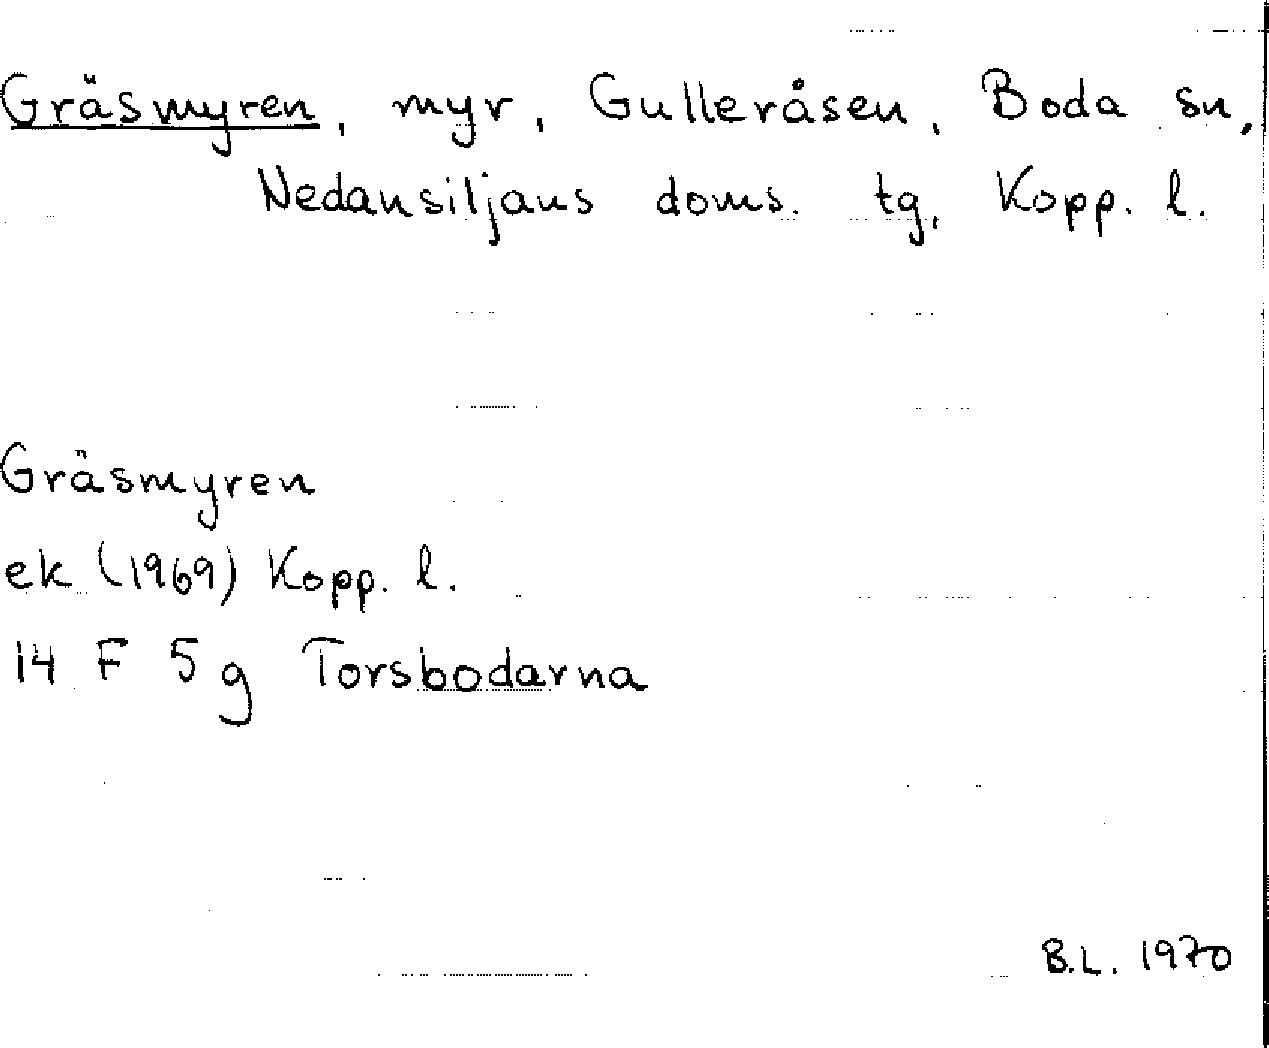 Gräsmyren, myr, Gulleråsen, Boda sn,
Nedansiljans doms. tg, Kopp. l.
Gräsmyren
ek (1969) Kopp. l.
14 F 5 g Torsbodarna
B.L. 1970